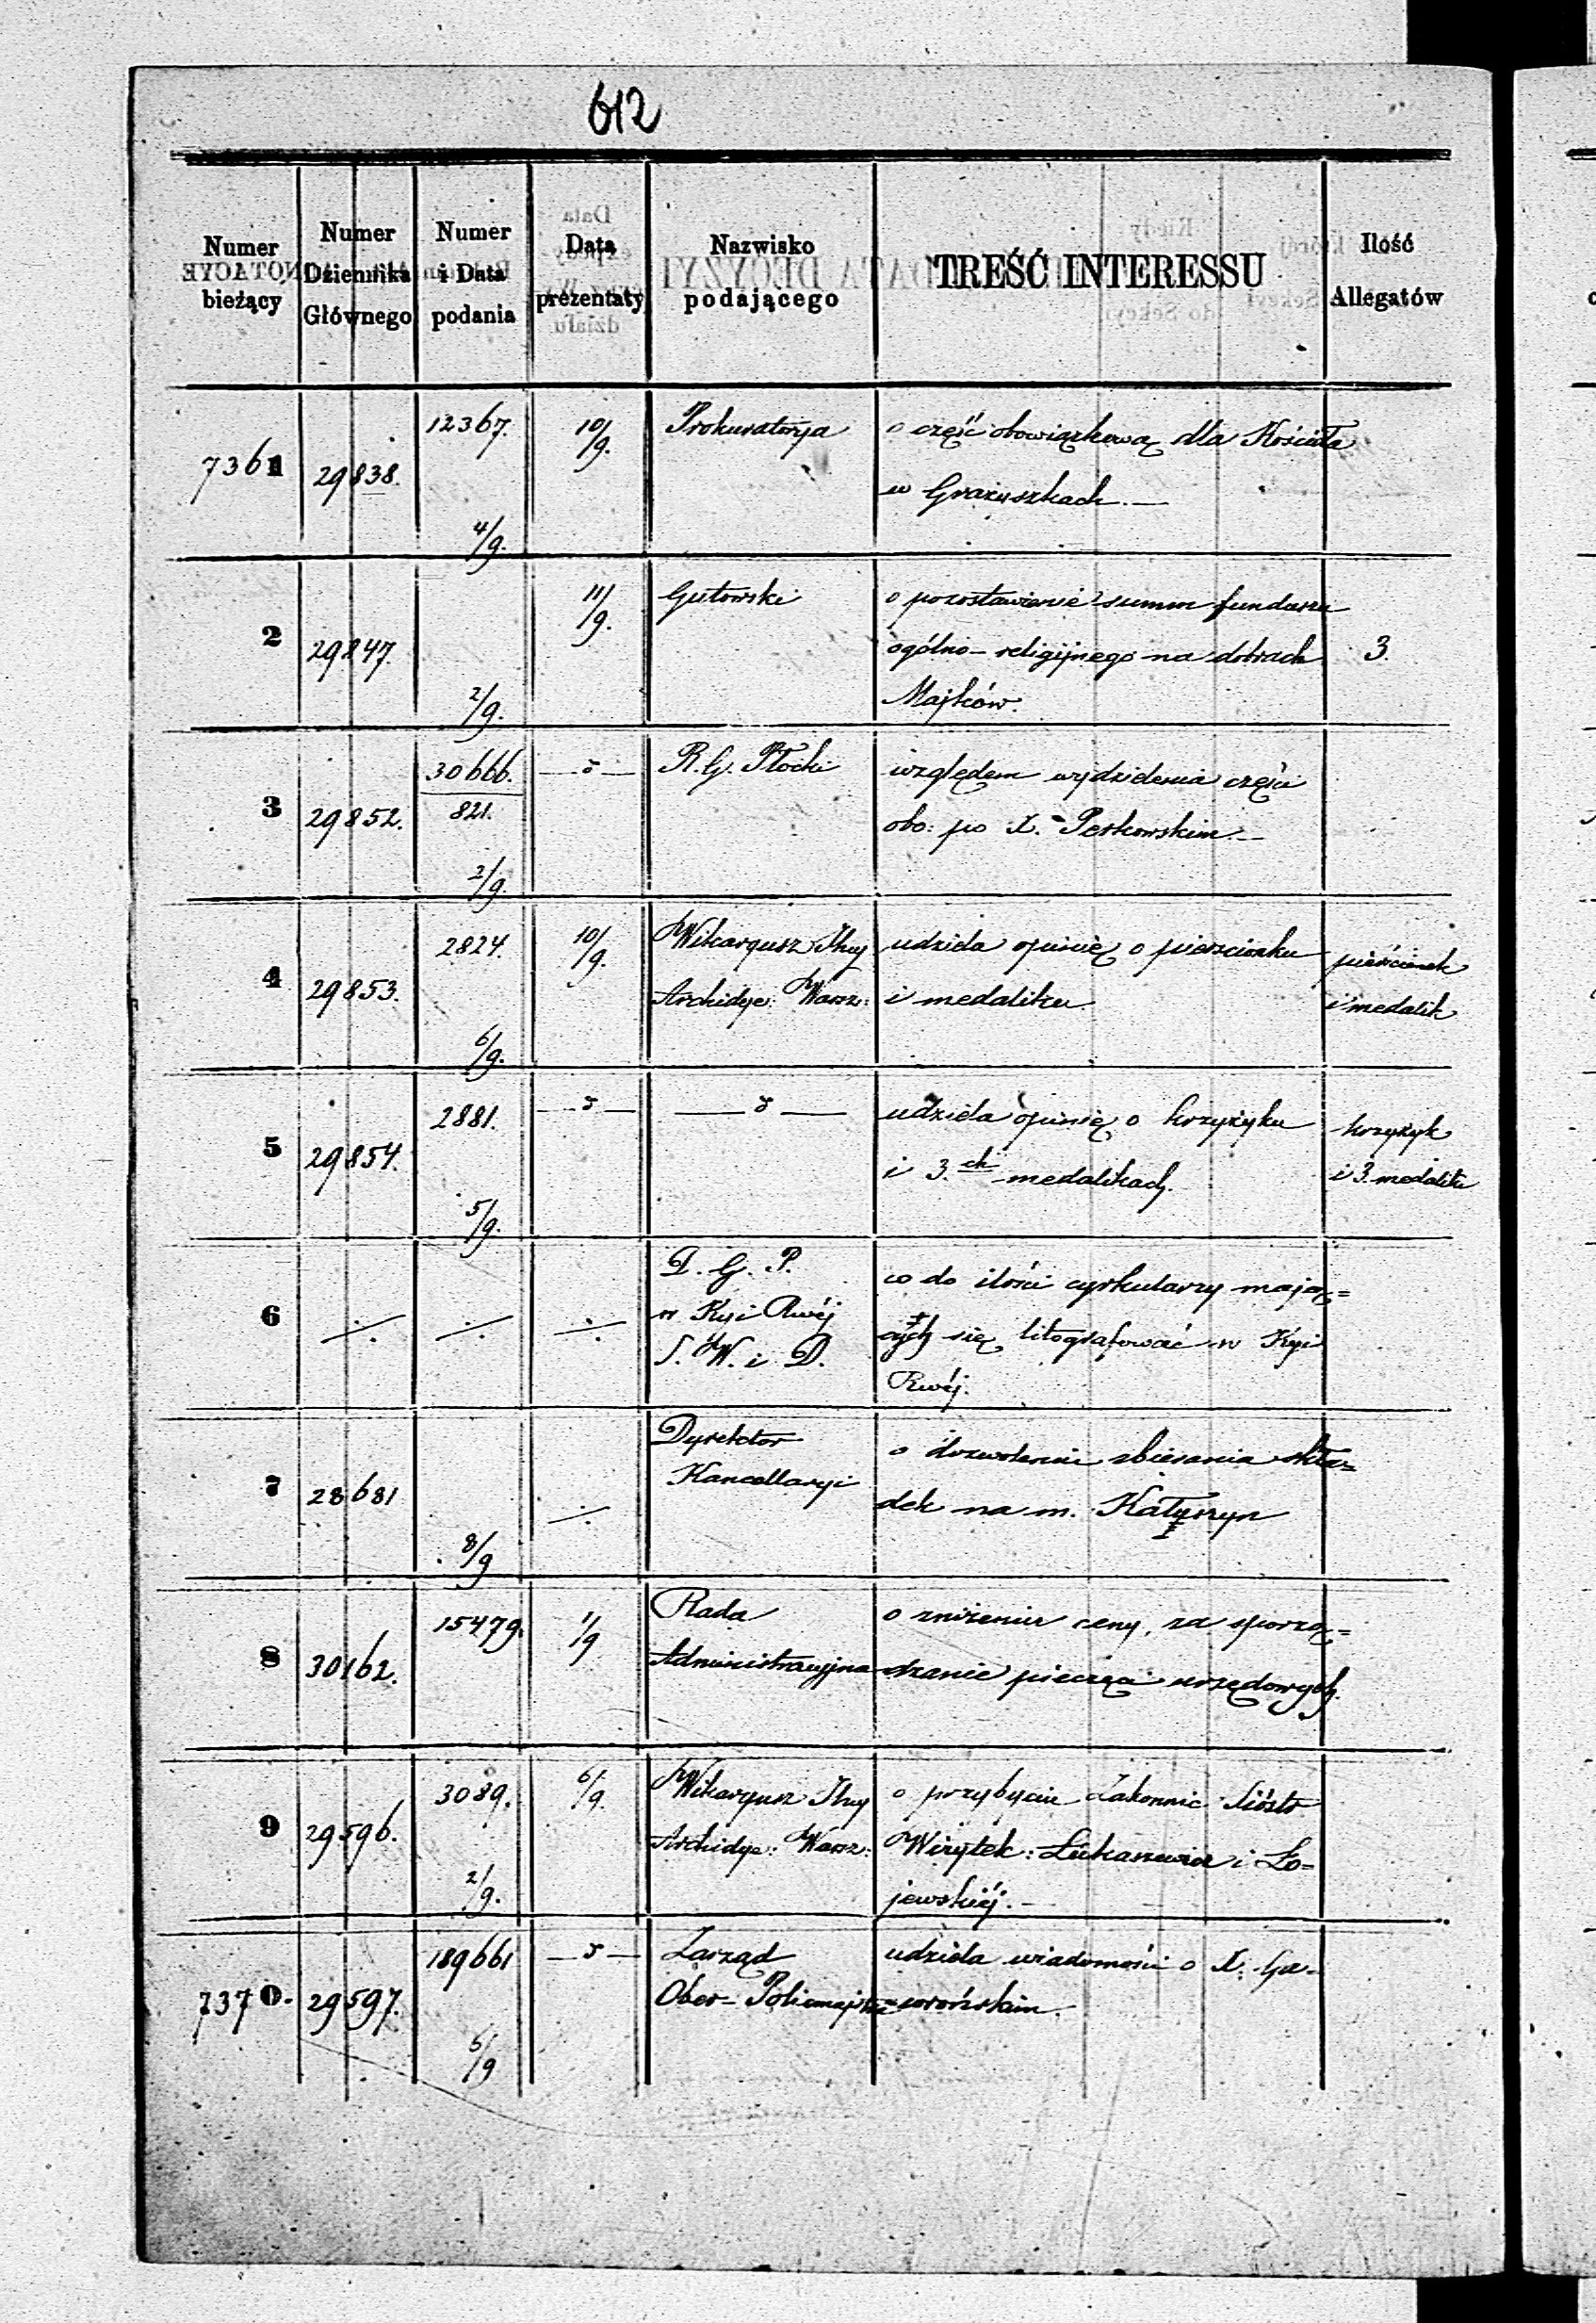 612
Numer bieżący
Numer Dziennika Głównego
Numer i Data podania
Data prezentaty
Nazwisko podającego
TREŚĆ INTERESSU
Ilość Allegatów
7361 29838. 12367. 4/9. 10/9. Prokuratorya o część obowiązkową dla Kościoła
w Grażyszkach.—
2 29847. 2/9. 11/9. Gutowski o pozostawienie summ funduszu
ogólno-religijnego na dobrach 3.
Majków.
3 29852. 30666. 821. 2/9. R. G. Płocki względem wydzielenia części
obo: po X. Perkowskim.—
4 29853. 2824. 6/9. 10/9. Wikaryusz Jlny udziela opinię o pierscionku pierścionek
Archidye: Warsz: i medaliku. i medalik
5 29854. 2881. 5/9. udziela opinię o krzyżyku krzyżyk
i 3.ch medalikach. i 3. medaliki
6 D. G. P. co do ilości cyrkularzy mają=
w Kyi Rwéj cych się litografować w Kyi
S. W. i D. Rwéj.
7 28681 8/9 Dyrektor o dozwoleniu zbierania skła=
Kancellaryi dek na m. Kałuszyn
8 30162. 15479. 1/9 Rada o zniżeniu ceny, za sporzą=
Administracyjna dzanie pieczęci urzędowych.
9 29596. 3089. 2/9. 6/9. Wikaryusz Jlny o przybyciu Zakonnic Sióstr
Archidye: Warsz: Wizytek: Łukaszewicz i Ło=
jewskiéj.—
7370. 29597. 189661 5/9 Zarząd udziela wiadomości o X. Ga=
Ober-Policmajstra worońskim.